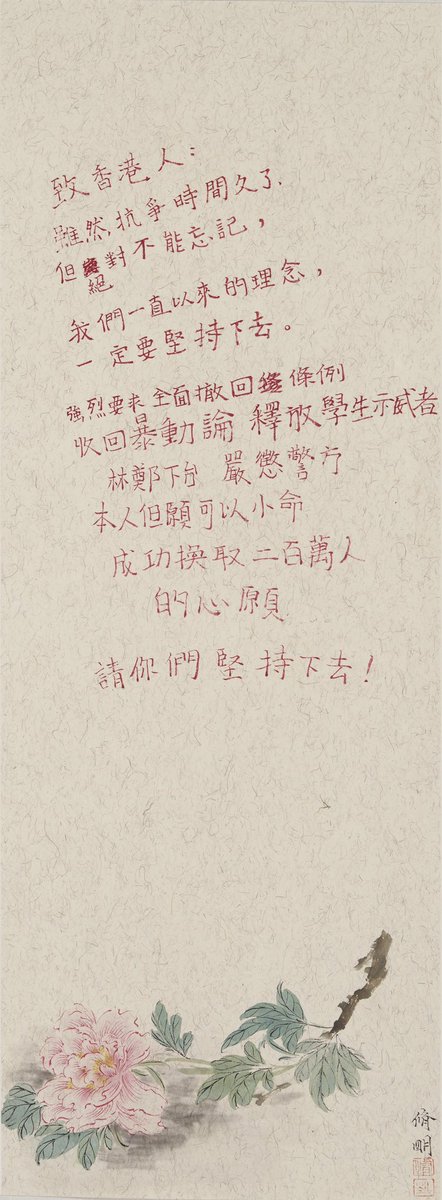 致香港人：
雖然,抗爭時間久了,
但絕對不能忘記，
我們一直以來的理念，
一定要堅持下去。
強烈要求 全面撤回條例
收回暴動論 釋放學生示威者
林鄭下台 嚴懲警方
本人但願可以小命
成功換取二百萬人
的心願
請你們堅持下去！
脩明